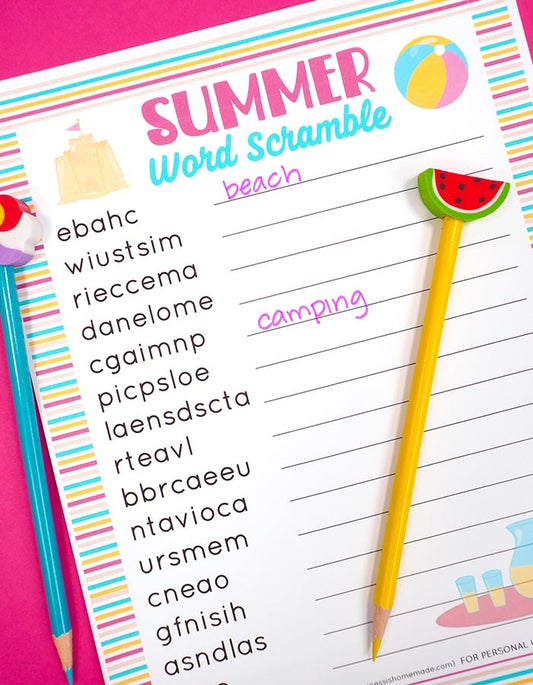 SUMMER
Word Scramble
ebahc beach
wiustsim
rieccema
danelome
cgaimnp camping
picpsloe
laensdscta
rteavl
bbrcaeeu
ntavioca
ursmem
cneao
gfnisih
asndlas
essishomemade.com) FOR PERSONAL